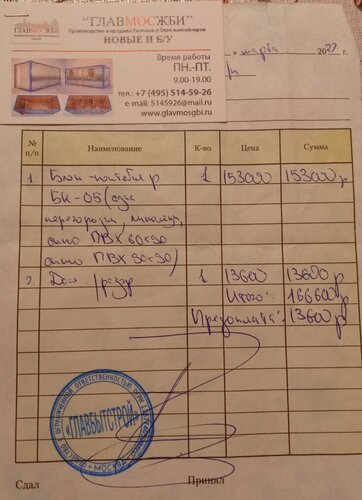 ГЛАВМОСЖБИ
"ГЛАВМОСЖБИ"
Производство и продажа бытовок и блок контейнеров
НОВЫЕ И Б/У
Время работы
ПН.-ПТ.
9.00-19.00
тел.: +7 (495) 514-59-26
e-mail: 5145926@mail.ru
www.glavmosgbi.ru
марта 20
№ п/п Наименование К-во Цена Сумма
1 Блок-контейнер 1 153000 153000 р
БК-05 (одна
перегородка, линолеум,
окно ПВХ 60х90
окно ПВХ 90х90)
2. Дос /разгр 1 13600 13600 р
Итого: 166600 р
Предоплата: 13600 р
ОБЩЕСТВО С ОГРАНИЧЕННОЙ ОТВЕТСТВЕННОСТЬЮ
«ГЛАВБЫТСТРОЙ»
МОСКВА
Сдал Принял